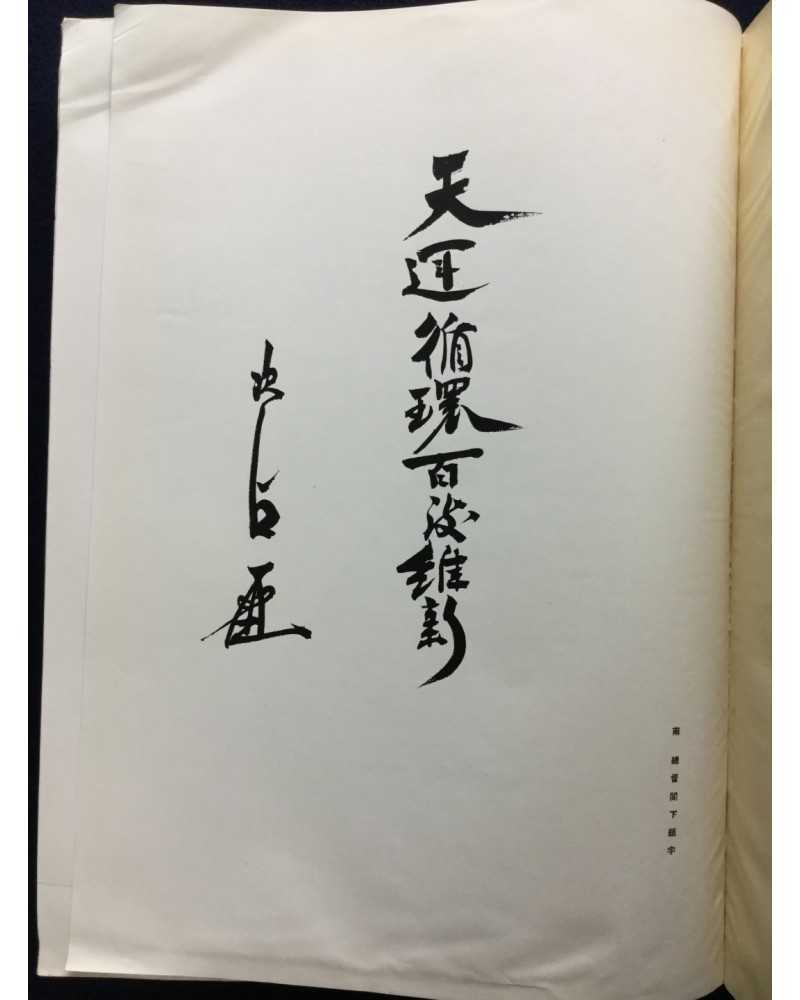 南 總督閣下題字
天運循環百維新
次郎